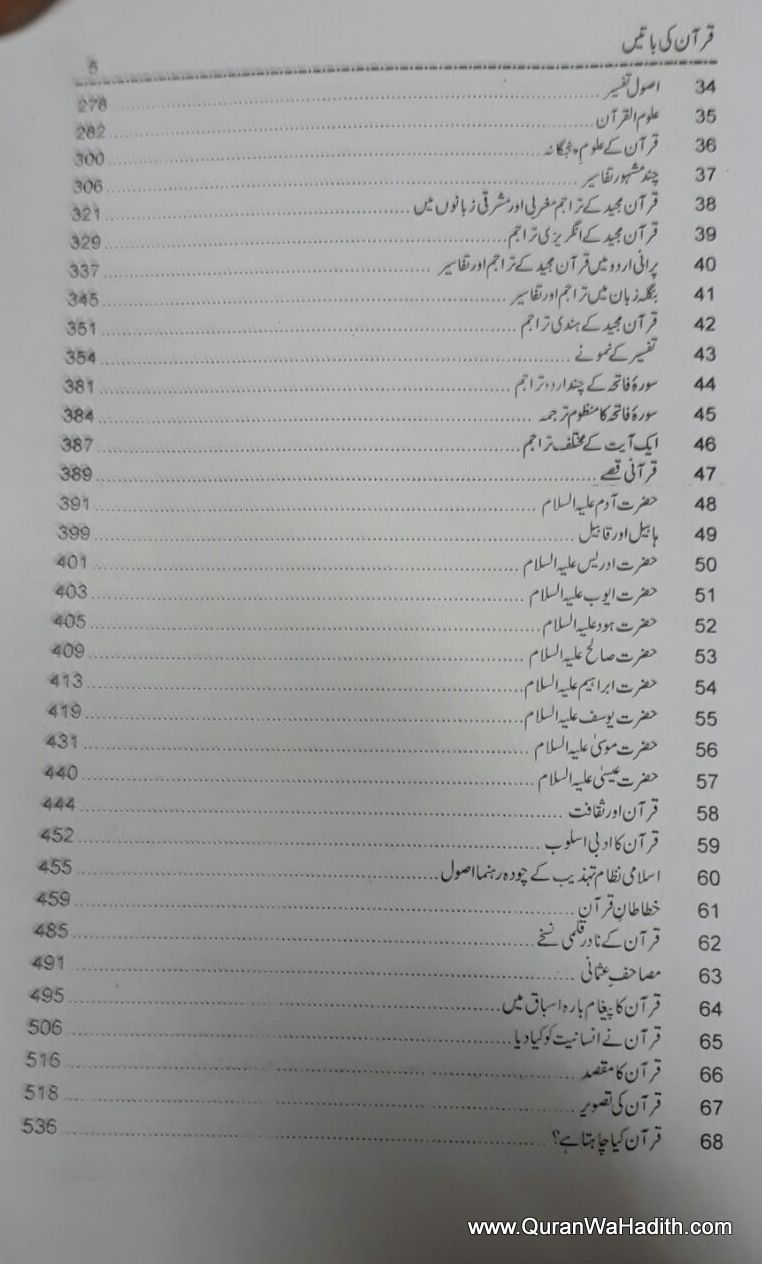 قرآن کی باتیں 6
34 اصول تفسیر 278
35 علوم القرآن 282
36 قرآن کے علومِ پنجگانہ 300
37 چند مشہور تفاسیر 306
38 قرآن مجید کے تراجم مغربی اور مشرقی زبانوں میں 321
39 قرآن مجید کے انگریزی تراجم 329
40 پرانی اردو میں قرآن مجید کے تراجم اور تفاسیر 337
41 بنگلہ زبان میں تراجم اور تفاسیر 345
42 قرآن مجید کے ہندی تراجم 351
43 تفسیر کے نمونے 354
44 سورۂ فاتحہ کے چند اردو تراجم 381
45 سورۂ فاتحہ کا منظوم ترجمہ 384
46 ایک آیت کے مختلف تراجم 387
47 قرآنی قصے 389
48 حضرت آدم علیہ السلام 391
49 ہابیل اور قابیل 399
50 حضرت ادریس علیہ السلام 401
51 حضرت ایوب علیہ السلام 403
52 حضرت ہود علیہ السلام 405
53 حضرت صالح علیہ السلام 409
54 حضرت ابراہیم علیہ السلام 413
55 حضرت یوسف علیہ السلام 419
56 حضرت موسیٰ علیہ السلام 431
57 حضرت عیسیٰ علیہ السلام 440
58 قرآن اور ثقافت 444
59 قرآن کا ادبی اسلوب 452
60 اسلامی نظام تہذیب کے چودہ رہنما اصول 455
61 خطاطانِ قرآن 459
62 قرآن کے نادر قلمی نسخے 485
63 مصاحفِ عثمانی 491
64 قرآن کا پیغام بارہ اسباق میں 495
65 قرآن نے انسانیت کو کیا دیا 506
66 قرآن کا مقصد 516
67 قرآن کی تصویر 518
68 قرآن کیا چاہتا ہے؟ 536
www.QuranWaHadith.com